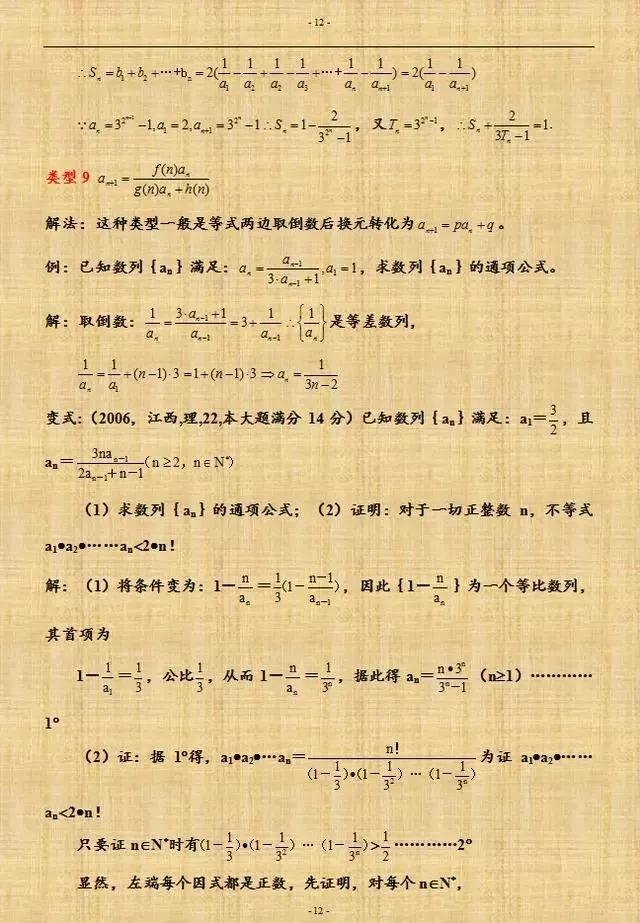 - 12 -
∴S_n=b_1+b_2+…+b_n=2(1/a_1-1/a_2+1/a_2-1/a_3+…+1/a_n-1/a_{n+1})=2(1/a_1-1/a_{n+1})
∵a_n=3^{2^{n-1}}-1,a_1=2,a_{n+1}=3^{2^n}-1∴S_n=1-2/(3^{2^n}-1)，又T_n=3^{2^n-1}，∴S_n+2/(3T_n-1)=1.
类型9 a_{n+1}=f(n)a_n/(g(n)a_n+h(n))
解法：这种类型一般是等式两边取倒数后换元转化为a_{n+1}=pa_n+q。
例：已知数列{a_n}满足：a_n=a_{n-1}/(3·a_{n-1}+1),a_1=1，求数列{a_n}的通项公式。
解：取倒数：1/a_n=(3·a_{n-1}+1)/a_{n-1}=3+1/a_{n-1}∴{1/a_n}是等差数列，
1/a_n=1/a_1+(n-1)·3=1+(n-1)·3⇒a_n=1/(3n-2)
变式:（2006，江西,理,22,本大题满分 14 分）已知数列{a_n}满足：a_1＝3/2，且
a_n＝3na_{n-1}/(2a_{n-1}+n-1)(n≥2，n∈N*)
（1）求数列{a_n}的通项公式；（2）证明：对于一切正整数 n，不等式
a_1•a_2•……a_n<2•n！
解：（1）将条件变为：1－n/a_n＝1/3(1-(n-1)/a_{n-1})，因此{1－n/a_n}为一个等比数列，
其首项为
1－1/a_1＝1/3，公比1/3，从而 1－n/a_n＝1/3^n，据此得 a_n＝n•3^n/(3^n-1)（n≥1）…………
1°
（2）证：据 1°得，a_1•a_2•…a_n＝n！/((1-1/3)•(1-1/3^2)…(1-1/3^n))为证 a_1•a_2•……
a_n<2•n！
只要证 n∈N*时有(1-1/3)•(1-1/3^2)…(1-1/3^n)>1/2…………2°
显然，左端每个因式都是正数，先证明，对每个 n∈N*，
- 12 -